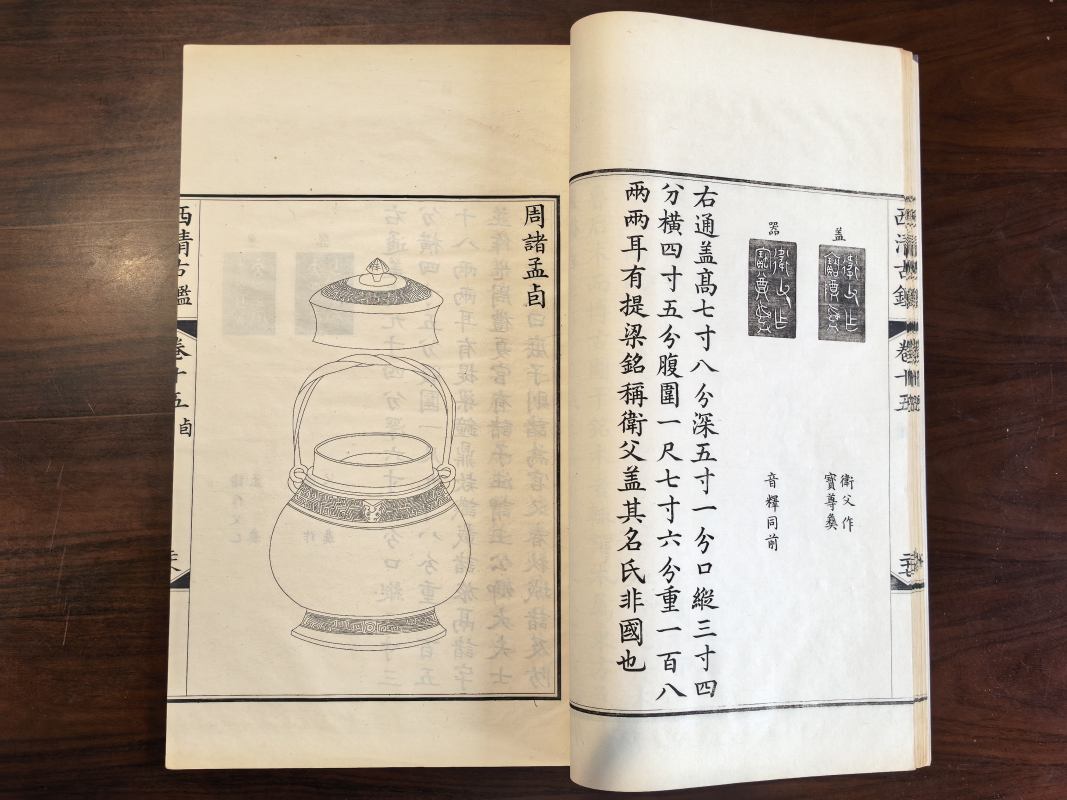 盖
衛父作
寶尊彝
器
音釋同前
右通盖髙七寸八分深五寸一分口縱三寸四
分橫四寸五分腹圍一尺七寸六分重一百八
兩兩耳有提梁銘稱衛父盖其名氏非國也
周諸孟卣
西清古鑑
卷十五 卣